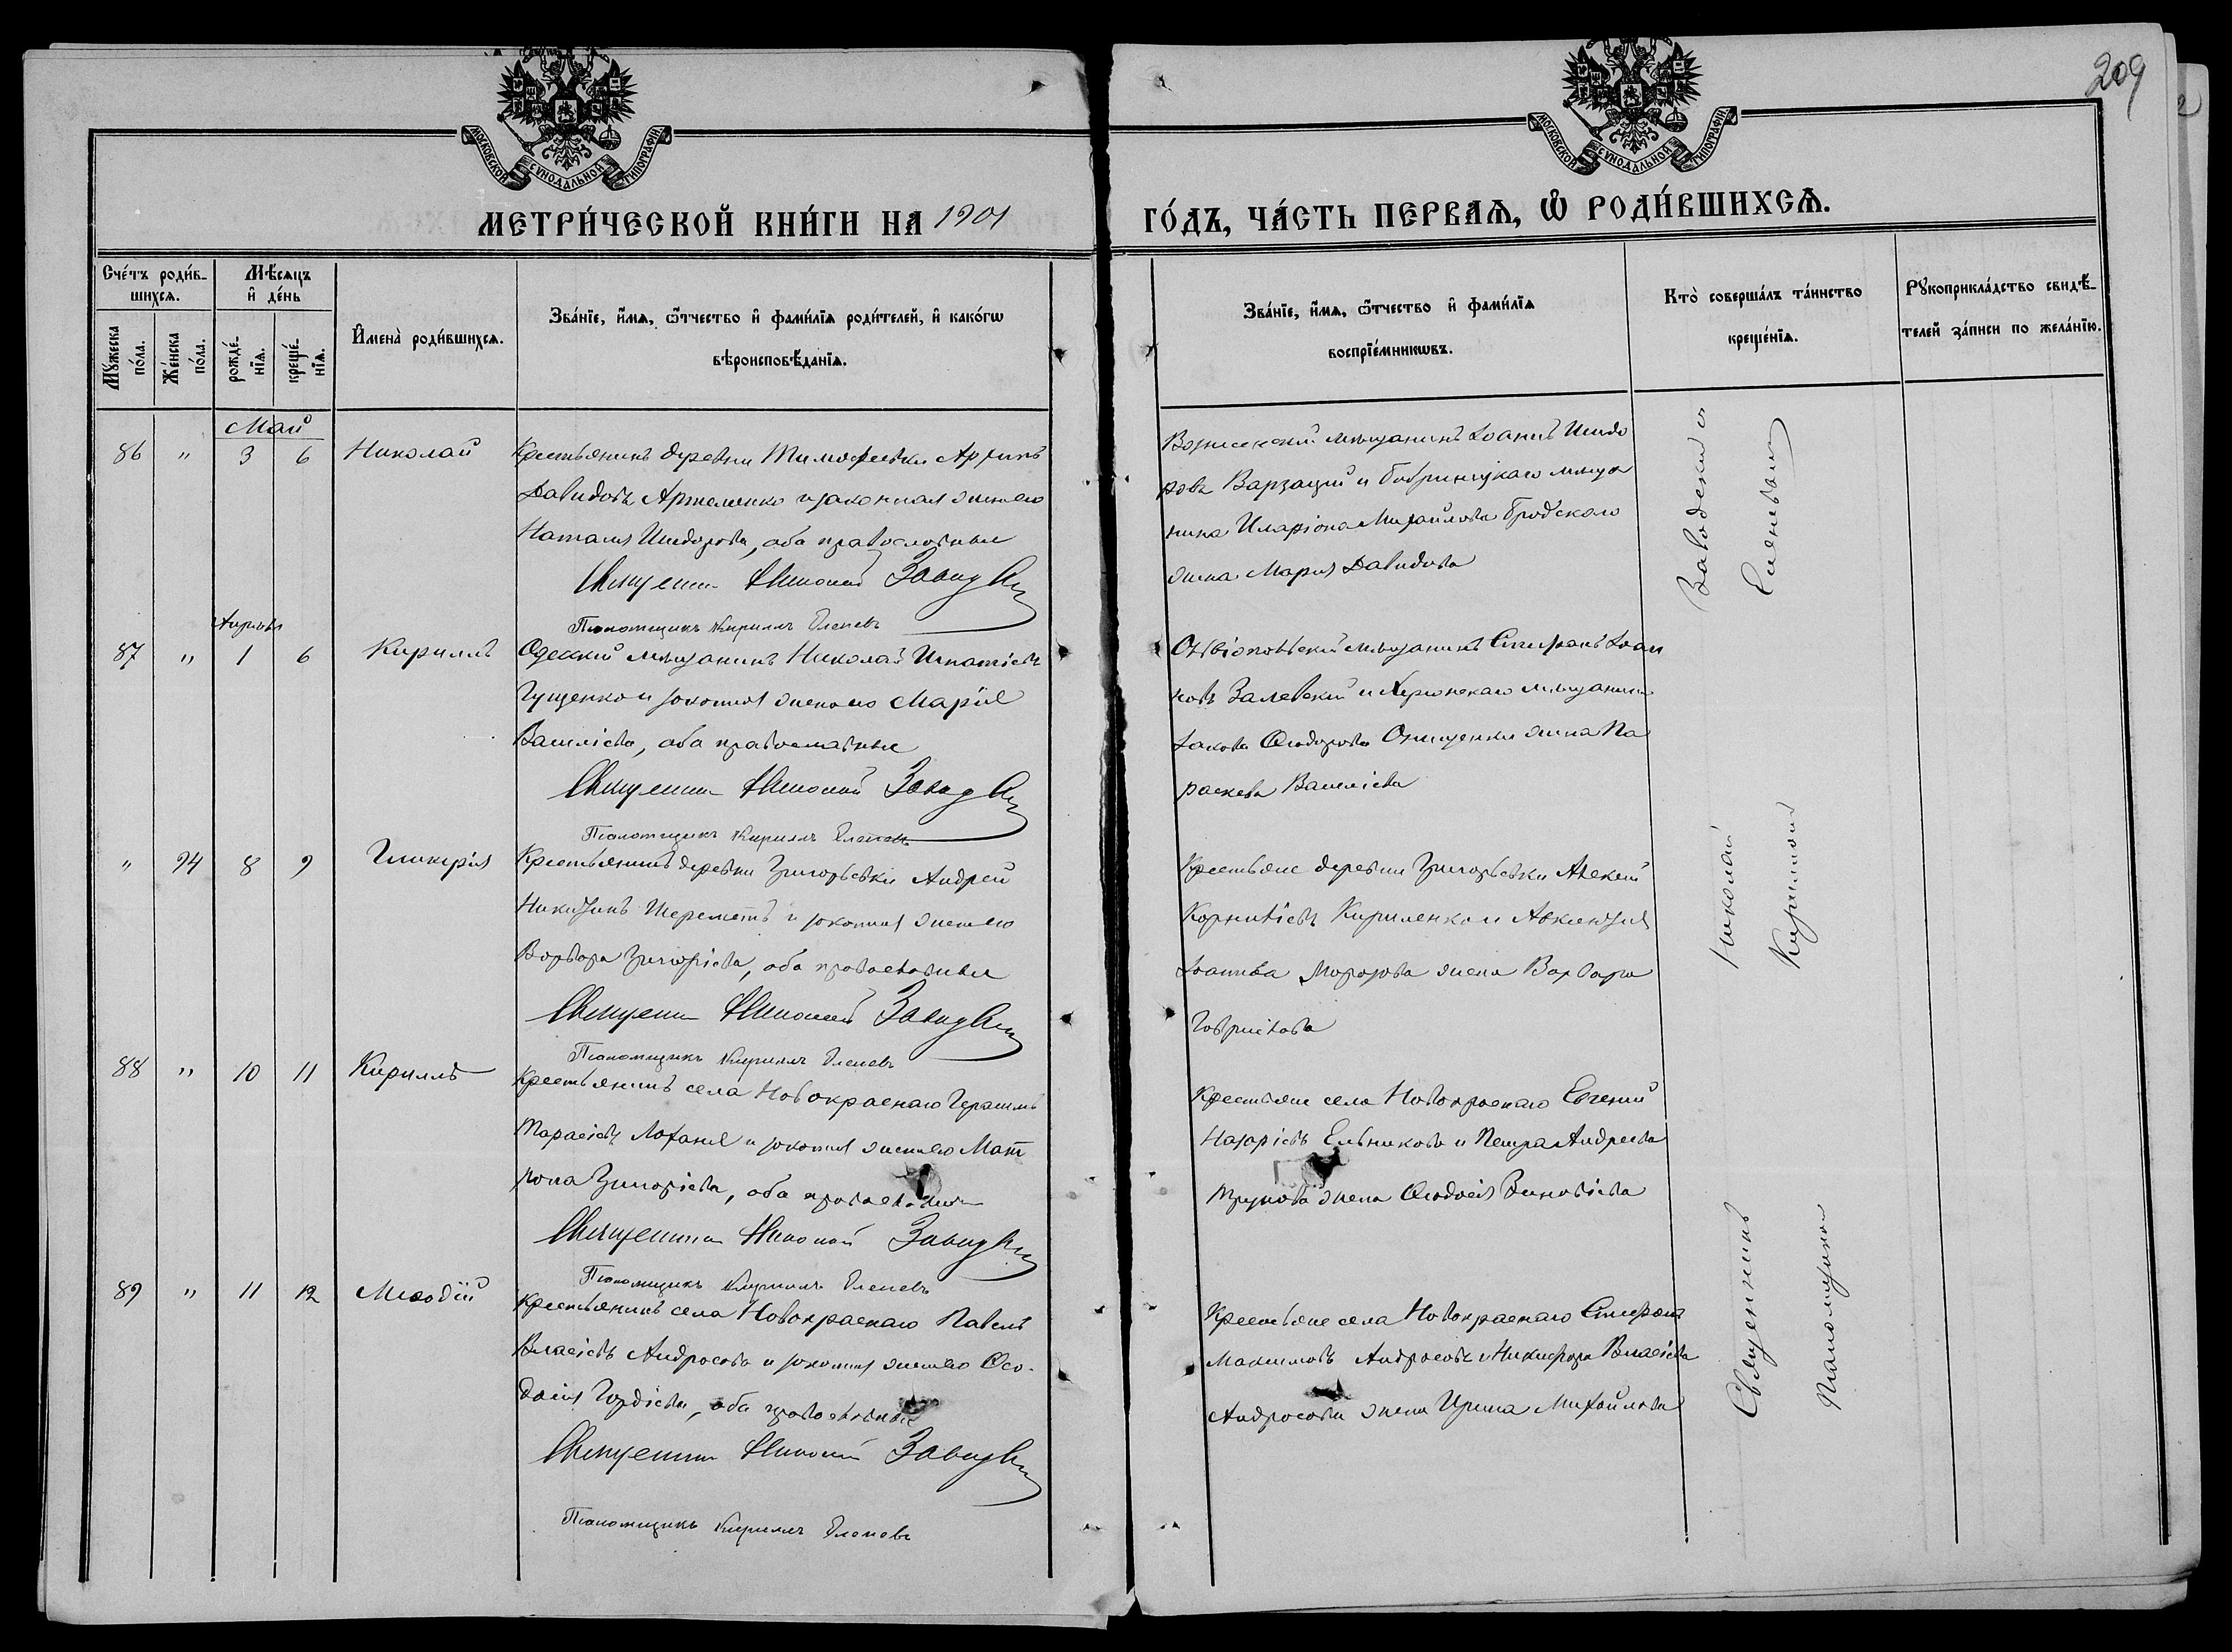 209
МОСКОВСКОЙ СѴНОДАЛЬНОЙ ТИПОГРАФІИ
МОСКОВСКОЙ СѴНОДАЛЬНОЙ ТИПОГРАФІИ
МЕТРИ́ЧЕСКОЙ КНИ́ГИ НА 1901 ГО́ДЪ, ЧА́СТЬ ПЕРВАѦ, Ѡ РОДИ́ВШИХСѦ.
Сче́тъ роди́в-
шихсѧ.
Мꙋ́жеска
по́ла.
Же́нска
по́ла.
Мѣ́сѧцъ
и҆ де́нь
рожде́-
нїѧ.
креще́-
нїѧ.
И҆мена̀ роди́вшихсѧ.
Зва́нїе, и҆́мѧ, ѻ҆́тчество и҆ фами́лїѧ роди́телей, и҆ како́гѡ
вѣроисповѣ́данїѧ.
Зва́нїе, и҆́мѧ, ѻ҆́тчество и҆ фами́лїѧ
воспрїе́мникѡвъ.
Кто̀ соверша́лъ та́инство
креще́нїѧ.
Рꙋкоприкла́дство свидѣ́-
телей за́писи по жела́нїю.
Май
86 " 3 6 Николай
Крестьянинъ деревни Тимофеевки
Давидовъ Артеменко и законная жена его
Наталия Исидорова, оба православные
Священникъ Николай
Псаломщикъ Кириллъ
Вознесенский мещанинъ Іоаннъ Исидо
ровъ Варзаций и Бобринецкаго меща
нина Иларіона Михайлова Бродскаго
жена Мария Давидова
Апрель
87 " 1 6 Кириллъ
Одесский мещанинъ Николай Игнатіевъ
Гущенко и законная жена его Марія
Василіева, оба православные
Священникъ Николай
Псаломщикъ Кириллъ
Овидіопольский мещанинъ Стефанъ Іоан
новъ Залевский и Херсонскаго мещанина
Іакова Ѳеодорова Онищенки жена Па
раскева Василіева
" 94 8 9 Гликерія
Крестьянинъ деревни Григорьевки Андрей
Никитинъ Шереметъ и законная жена его
Варвара Григоріева, оба православные
Священникъ Николай
Псаломщикъ Кириллъ
Крестьяне деревни Григорьевки Алексей
Корниліевъ Кириленко и
Іоаннова Морозова жена Варвара
Гавриилова
88 " 10 11 Кириллъ
Крестьянинъ села Новокраснаго Герасимъ
Тарасіевъ и законная жена его Мат
рона Григоріева, оба православные
Священникъ Николай
Псаломщикъ Кириллъ
Крестьяне села Новокраснаго Евгений
Назаріевъ Ельниковъ и Петра Андреева
жена Ѳеодосия Зиновіева
89 " 11 12 Меѳодій
Крестьянинъ села Новокраснаго Павелъ
Власіевъ Андросовъ и законная жена его Ѳео-
досия Гордіева, оба православные
Священникъ Николай
Псаломщикъ Кириллъ
Крестьяне села Новокраснаго Стефанъ
Максимовъ Андросовъ и Никифора Власіева
Андросова жена Ирина Михайлова
Священникъ Николай
Псаломщикъ Кириллъ